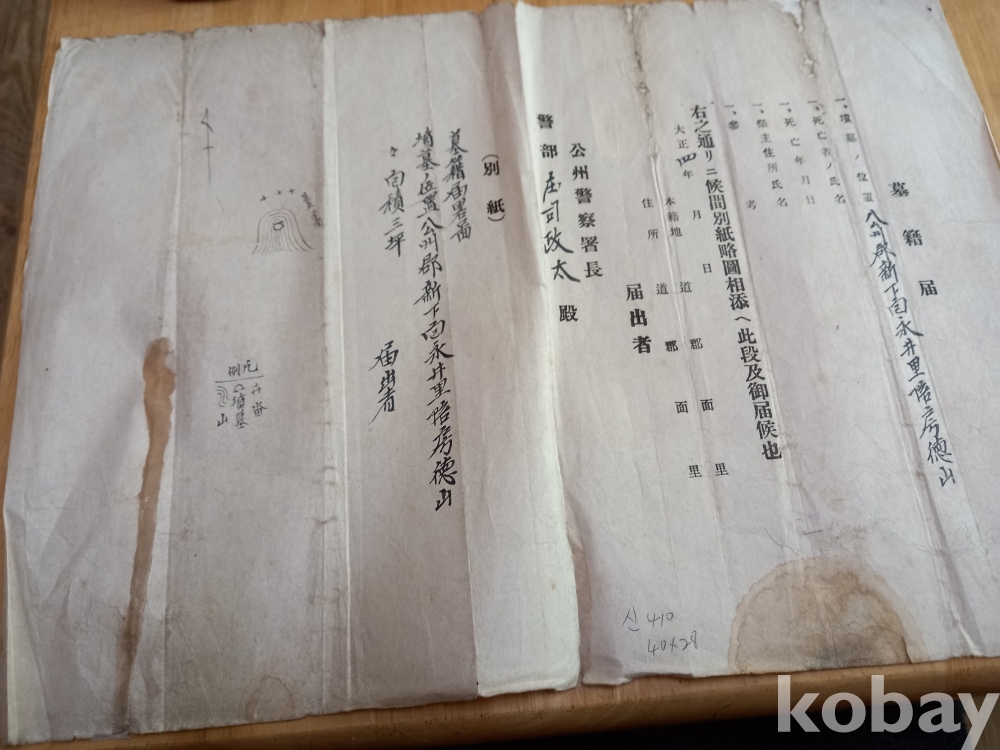 墓籍届
一、墳墓ノ位置 公州郡新下面永井里陪房德山
一、死亡者ノ氏名
一、死亡年月日
一、祭主住所氏名
一、參考
右之通リニ候間別紙略圖相添ヘ此段及御届候也
大正四年 月 日
本籍地 道 郡 面 里
住所 道 郡 面 里
届出者
公州警察署長
警部 庄司政太 殿
(別紙)
墓籍届畧圖
墳墓ノ位置公州郡新下面永井里陪房德山
届出者
凡例
墳墓
山
신 410
40x28
kobay